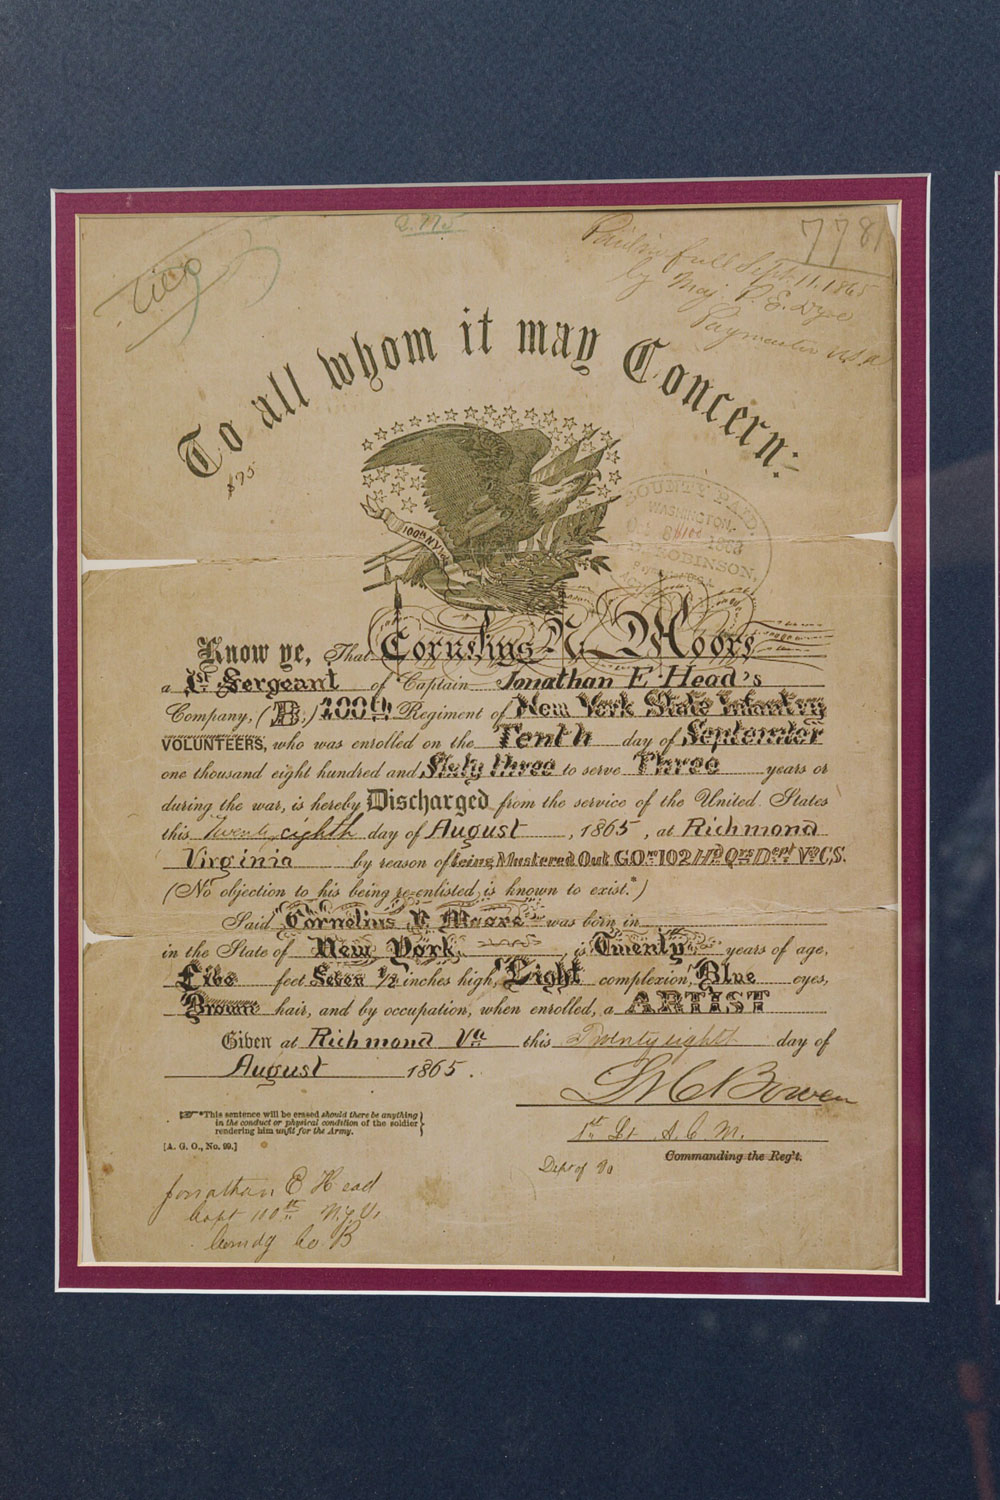 7781
Paid in full Sept. 11, 1865
by Maj. P. E. Dye
Paymaster U.S.A
To all whom it may Concern:
$75
100th N.Y.V.
COUNTY PAID
WASHINGTON,
1868
ROBINSON,
Know ye, That Cornelius N. Moore
a 1st Sergeant of Captain Jonathan E Head's
Company, (B,) 100th Regiment of New York State Infantry
VOLUNTEERS, who was enrolled on the Tenth day of September
one thousand eight hundred and Sixty three to serve Three years or
during the war, is hereby Discharged from the service of the United States
this Twenty eighth day of August, 1865, at Richmond
Virginia by reason of being Mustered Out G.O. No 102 Hd Qrs Dept Va C.S.
(No objection to his being re-enlisted is known to exist.*)
Said Cornelius Moore was born in
in the State of New York, is Twenty years of age,
Five feet Seven 1/2 inches high, Light complexion, Blue eyes,
Brown hair, and by occupation, when enrolled, a ARTIST
Given at Richmond Va this Twenty eighth day of
August 1865.
Bowen
*This sentence will be erased should there be anything
in the conduct or physical condition of the soldier
rendering him unfit for the Army.
[A. G. O., No. 99.]
1st Lt A. C. M.
Commanding the Reg't.
Dept of Va
Jonathan E Head
Capt 100th N.Y. Vs
Comdg Co B